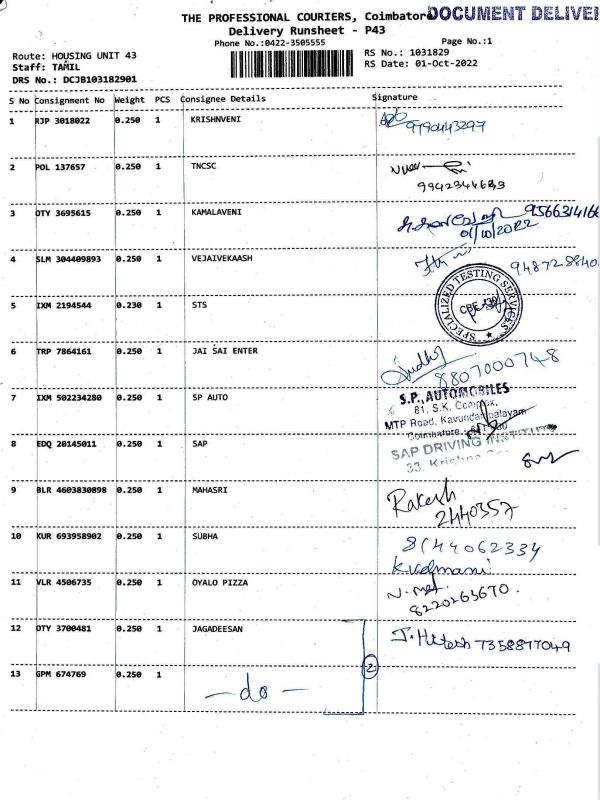 THE PROFESSIONAL COURIERS, Coimbatore
DOCUMENT DELIVE
Delivery Runsheet - P43
Phone No.:0422-3505555
Page No.:1
Route: HOUSING UNIT 43
RS No.: 1031829
Staff: TAMIL
RS Date: 01-Oct-2022
DRS No.: DCJB103182901
S No Consignment No Weight PCS Consignee Details Signature
1 RJP 3018022 0.250 1 KRISHNVENI
9790443297
2 POL 137657 0.250 1 TNCSC
9942344683
3 OTY 3695615 0.250 1 KAMALAVENI
9566314166
01/10/2022
4 SLM 304409893 0.250 1 VEJAIVEKAASH
948728840
5 IXM 2194544 0.230 1 STS
SPECIALIZED TESTING SERVICES
CBE
6 TRP 7864161 0.250 1 JAI SAI ENTER
8807000748
7 IXM 502234280 0.250 1 SP AUTO
S.P., AUTOMOBILES
81, S.K. Complex,
MTP Road, Kavundampalayam
Coimbatore
8 EDQ 20145011 0.250 1 SAP
SAP DRIVING INSTITUTE
33, Krishna
9 BLR 4603830898 0.250 1 MAHASRI
Rakesh
2440357
10 KUR 693958902 0.250 1 SUBHA
8144062334
11 VLR 4506735 0.250 1 OYALO PIZZA
8220263670.
12 OTY 3700481 0.250 1 JAGADEESAN
J. Hitesh 7358877049
13 GPM 674769 0.250 1
— do —
2